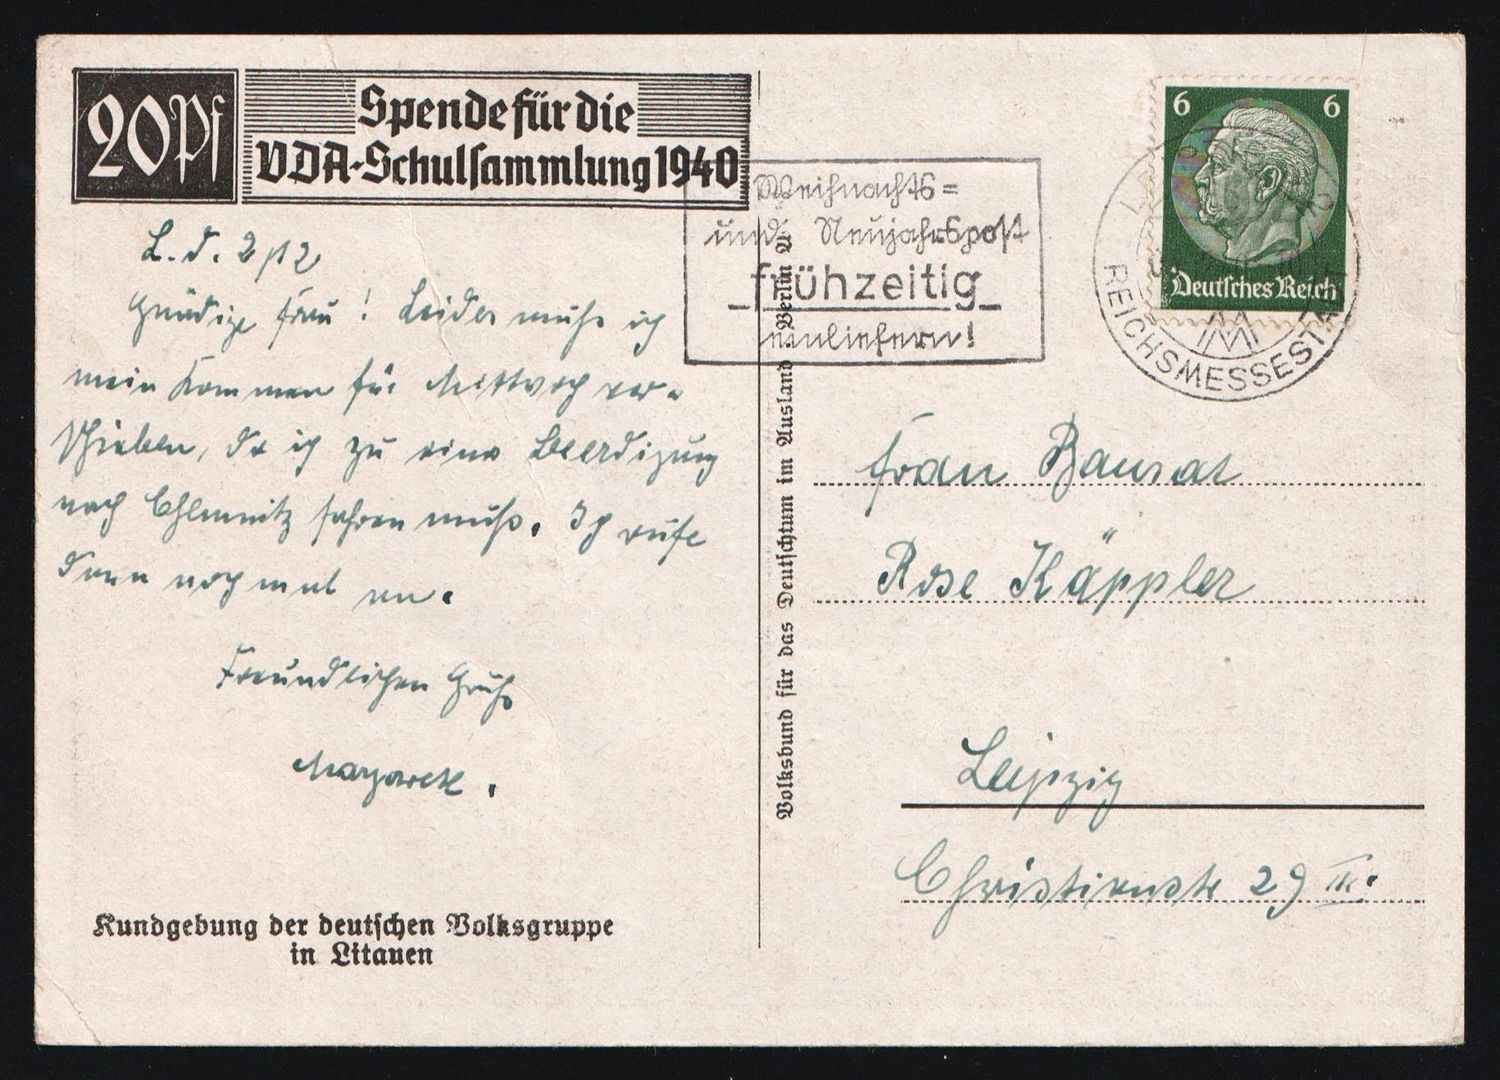 20Pf
Spende für die
VDA-Schulsammlung 1940
L. d. 2/12
Gnädige Frau! Leider muß ich
mein Kommen für Mittwoch ver-
schieben, da ich zu einer Beerdigung
nach Chemnitz fahren muß. Ich rufe
dann noch mal an.
Freundlichen Gruß
Margarete.
Kundgebung der deutschen Volksgruppe
in Litauen
Volksbund für das Deutschtum im Ausland, Berlin
Weihnachts=
und Neujahrspost
frühzeitig
einliefern!
6 6
Deutsches Reich
REICHSMESSESTADT
Frau
Rose Käppler
Leipzig
Christianstr 29 III.